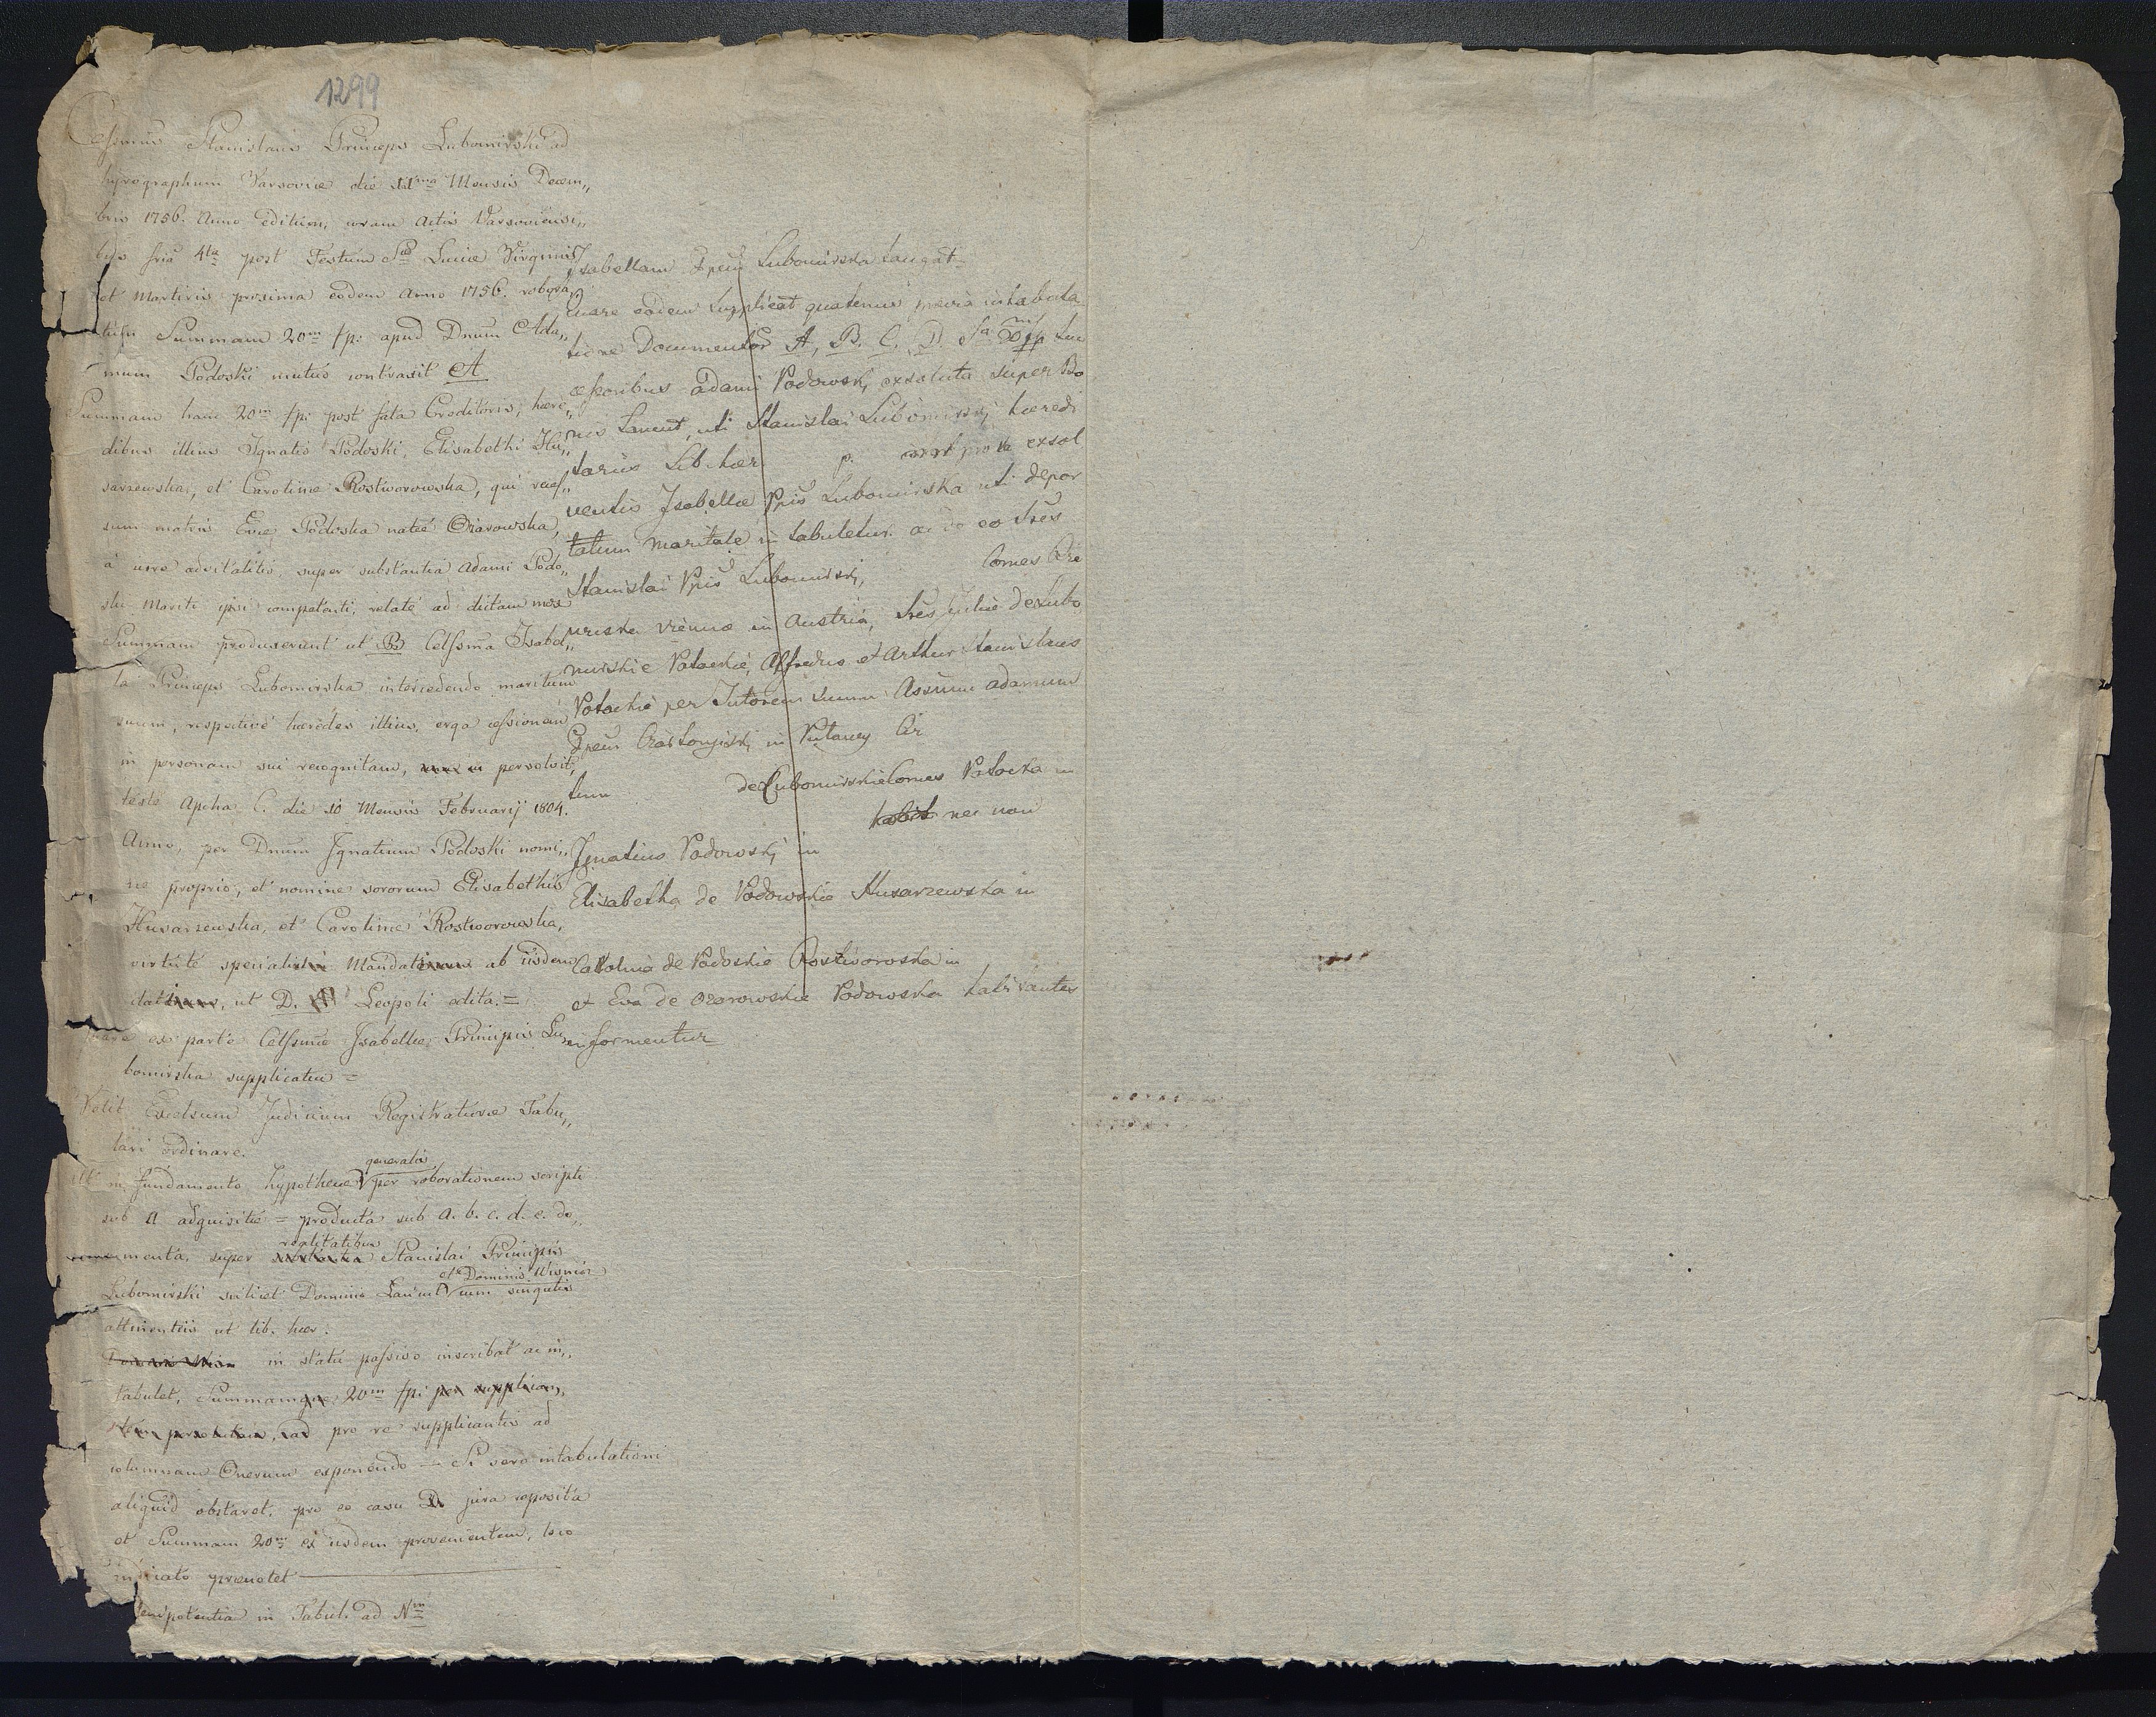 1299
Celsimus Stanislaus Princeps Lubomirski ad
hyrographum Varsoviæ die Mensis Decem„
bris 1756. Anno editum, coram Actis Varsoviensi„
bus fria 4ta post Festum Sæ Luciæ Virginis
et Martiris proxima eodem Anno 1756. robora„
tum Summam 20m fp: apud Dnum Ada„
mum Podoski mutuo contraxit A
Summam hanc 20m fp: post fata Creditoris, hære„
dibus illius Ignatio Podoski, Elisabethi Hu„
sarzewska, et Carolinæ Rostworowska, qui
sum matris Evæ Podoska natæ Ożarowska,
a jure advitalitio, super substantia Adami Podo„
ski Mariti ipsi competenti, relate ad dictam
Summam produxerunt ut B Celssma Isabel„
la Princeps Lubomirska intercedendo maritum
suum, respective hæredes illius, erga cessionem
in personam sui recognitam, persolvit,
teste Apcha C. die 10 Mensis Februarij 1804.
Anno, per Dnum Ignatium Podoski nomi„
ne proprio, et nomine sororum Elisabethis
Husarzewska, et Carolinæ Rostworowska,
virtute specialis Mandati ab iisdem
dat, ut D. Leopoli edita. =
ex parte Celssmæ Isabellæ Principis Lu„
bomirska supplicatur =
Velit Excelsum Judicium Registraturæ Tabu„
lari ordinare.
Ut in fundamento hypothecæ generalis per roborationem scripti
sub A adquisitæ = producta sub a. b. c. d. e. do„
menta, super realitatibus Stanislai Principis
Lubomirski scilicet Dominio Lancut et Dominio Wisnicz cum singulis
attinentiis ut lib. hær:
in statu passivo inscribat ac in„
tabulet, Summam 20m fp:
pro re supplicantis ad
columnam Onerum exponendo — Si vero intabulationi
aliquid obstaret, pro eo casu jura reposita
et Summam 20m ex iisdem provenientem, loco
prænotet
in Tabul. ad Nm
Isabellam Lubomirska tangat
Quare eadem supplicat quatenus prævia intabula
tione Documentor A, B. C. D. Sa 20m fp suc
cessoribus Adami Podowski exsoluta super Bo
nis Lancut, uti Stanislai Lubomirski hæredi
tariis Lib. hær p. pro re exsol
ventis Isabellæ Ppis Lubomirska uti depor
tatum maritale intabuletur. ac de eo Sres
Stanislai Ppis Lubomirski, Comes Rze
wuska Viennæ in Austria, Sres Juliæ de Lubo
mirskie Potockie, Alfredus et Arthur Stanislaus
Potockie per Tutorem suum Assum Adamum
Ppem Czartoryiski in Pulawy Cir
de Lubomirskie Comes Potocka in
nec non
Ignatius Podowski in
Elisabetha de Podowskie Husarzewska in
Carolina de Podoskie Rostworoska in
et Eva de Ozarowskie Podowska habitantes
informentur